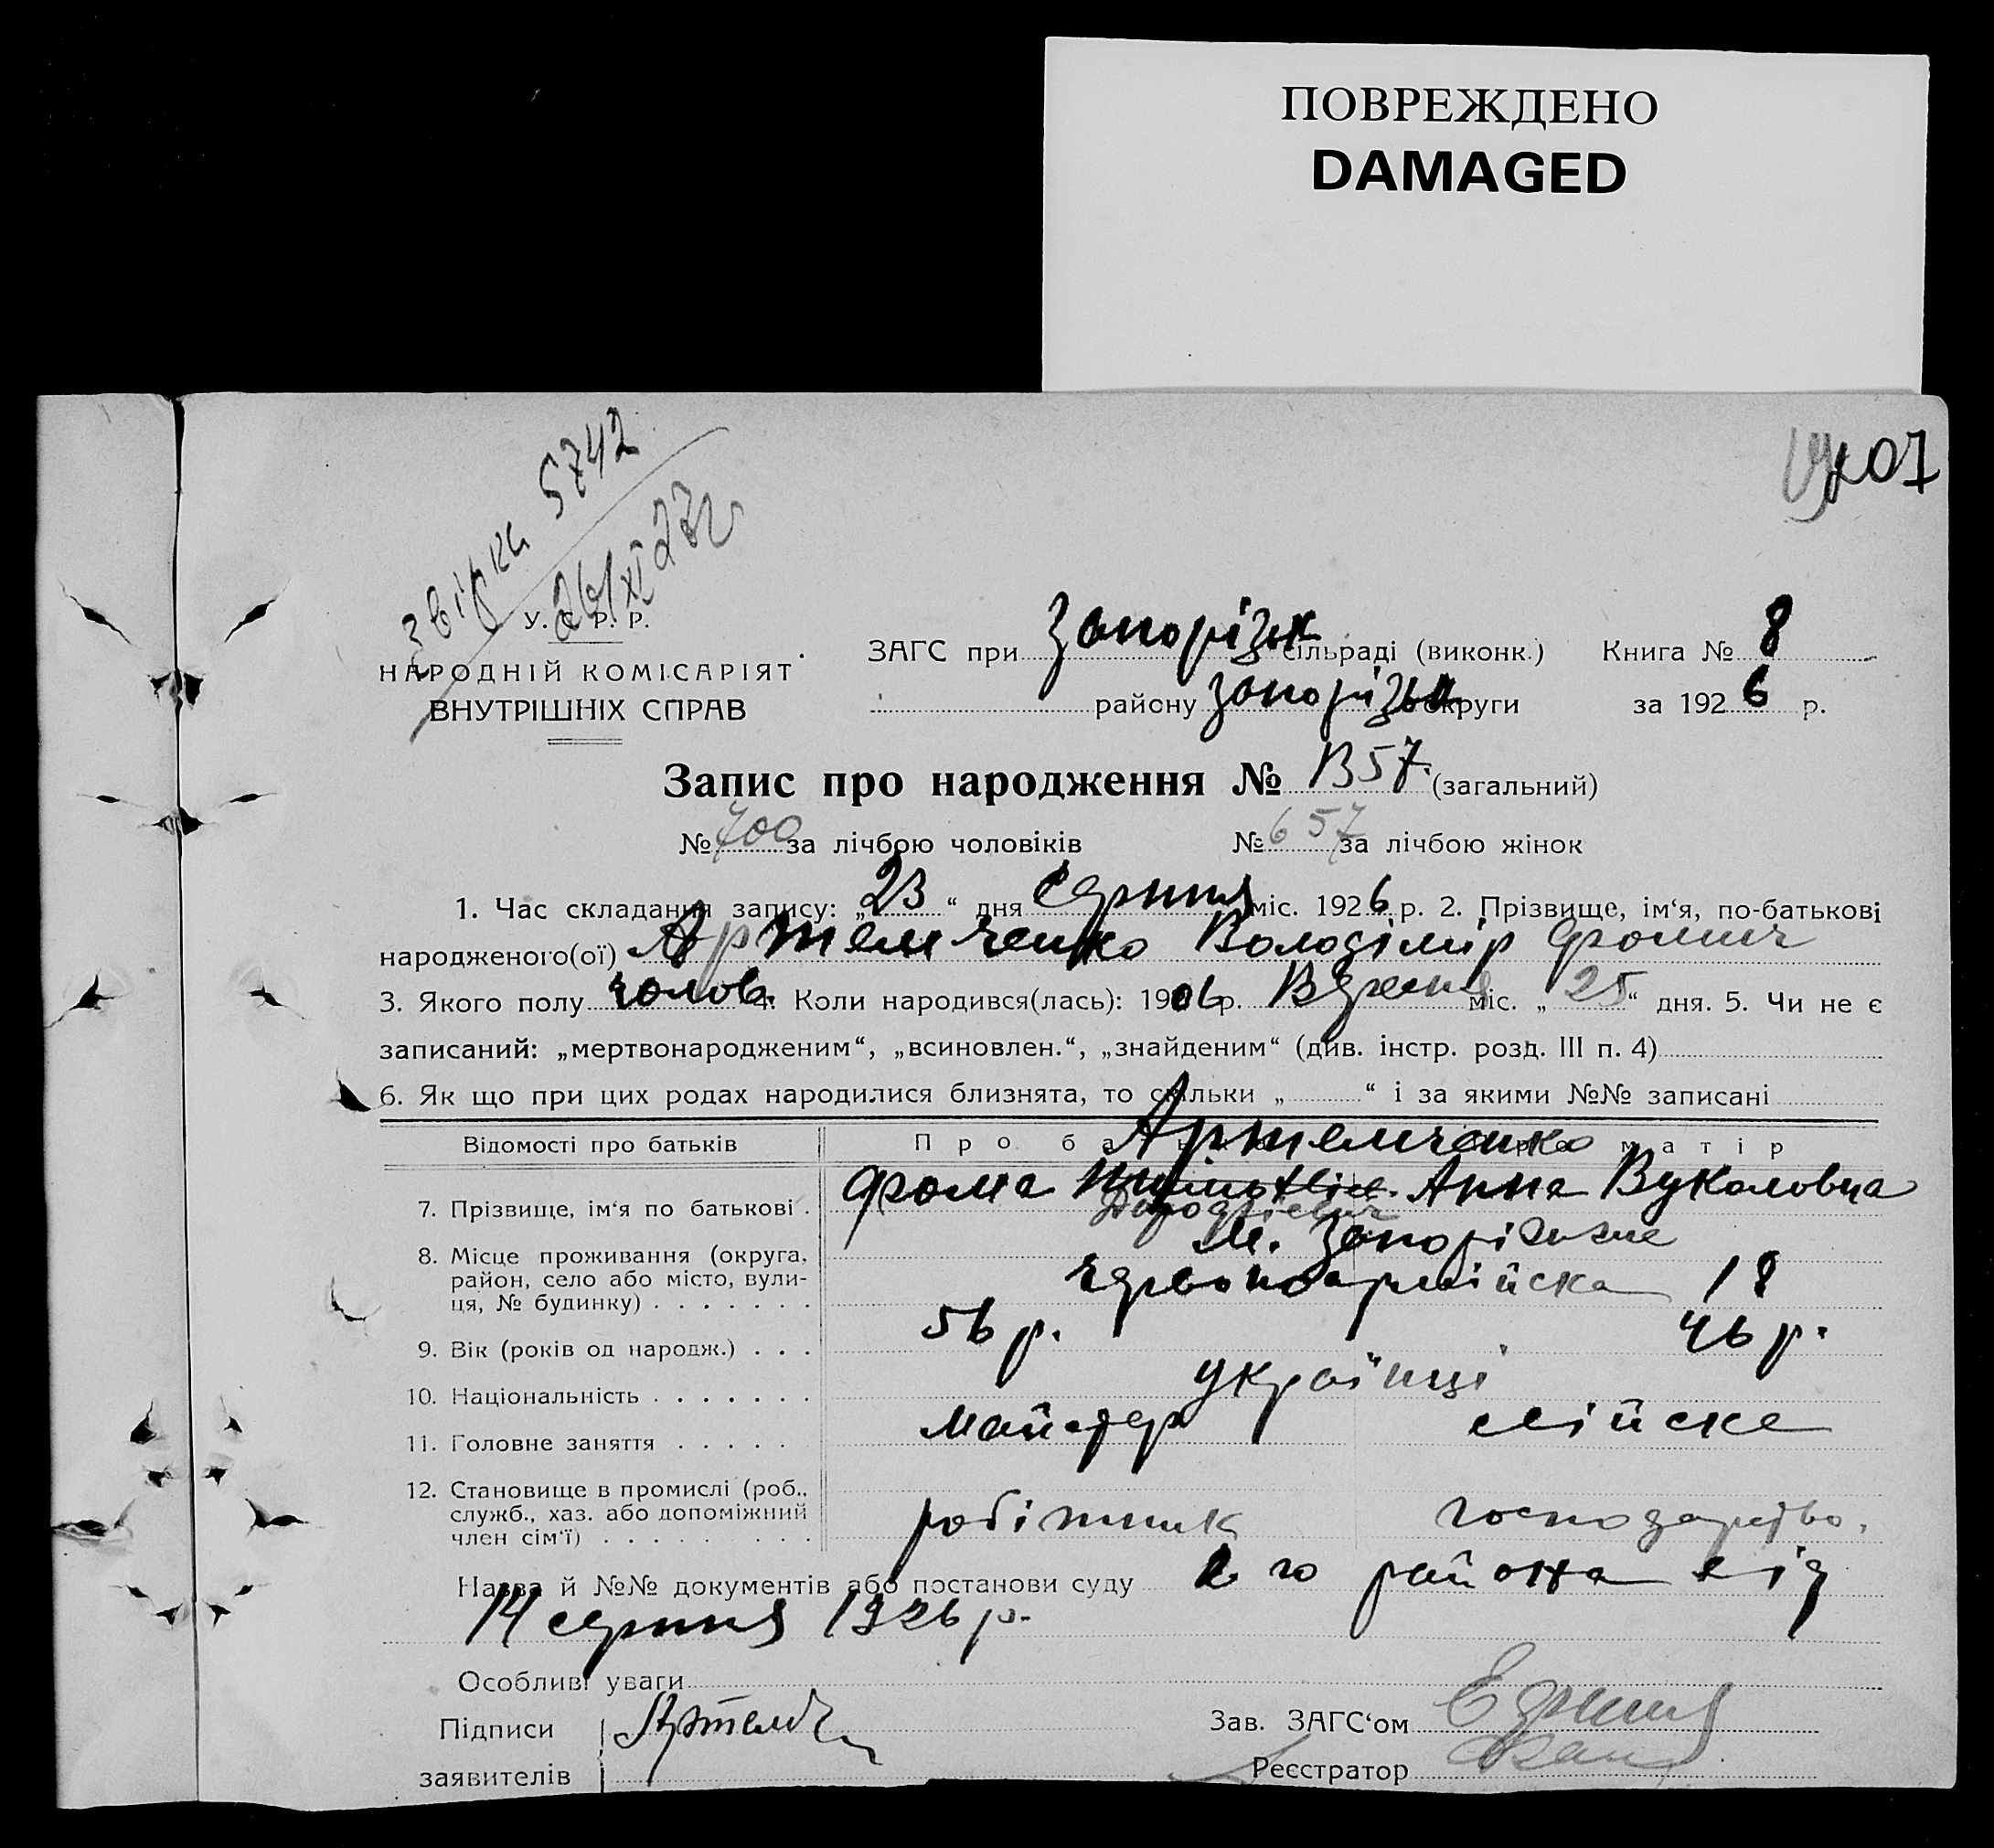 ПОВРЕЖДЕНО
DAMAGED
207
звірка 5742
26/XI 27г
У. С. Р. Р.
НАРОДНІЙ КОМІСАРІЯТ
ВНУТРІШНІХ СПРАВ
ЗАГС при Запорізьк сільраді (виконк.) Книга № 8
району Запорізьк округи за 1926 р.
Запис про народження № В57 (загальний)
№ 700 за лічбою чоловіків № 657 за лічбою жінок
1. Час складання запису: „23“ дня Серпня міс. 1926 р. 2. Прізвище, ім‘я, по-батькові
народженого(ої) Артемченко Володімір Фомич
3. Якого полу чолов. 4. Коли народився(лась): 1906 р. Вересня міс. „25“ дня. 5. Чи не є
записаний: „мертвонародженим“, „всиновлен.“, „знайденим“ (див. інстр. розд. III п. 4)
6. Як що при цих родах народилися близнята, то скільки „ “ і за якими №№ записані
Відомості про батьків Про батька Про матір
Артемченко
7. Прізвище, ім‘я по батькові . Фома Анна Вуколовна
8. Місце проживання (округа, район, село або місто, вулиця, № будинку) . . . . . . . м. Запоріжжє
Червоноармійска 18
9. Вік (років од народж.) . . . 56 р. 46 р.
10. Національність . . . . . . . українці
11. Головне заняття . . . . . майстер
12. Становище в промислі (роб., служб., хаз. або допоміжний член сім‘ї) . . . . . . . . робітник господарство.
Назва й №№ документів або постанови суду 2 го района від
14 серпня 1926 р.
Особливі уваги
Підписи Артемч
заявителів
Зав. ЗАГС‘ом
Реєстратор